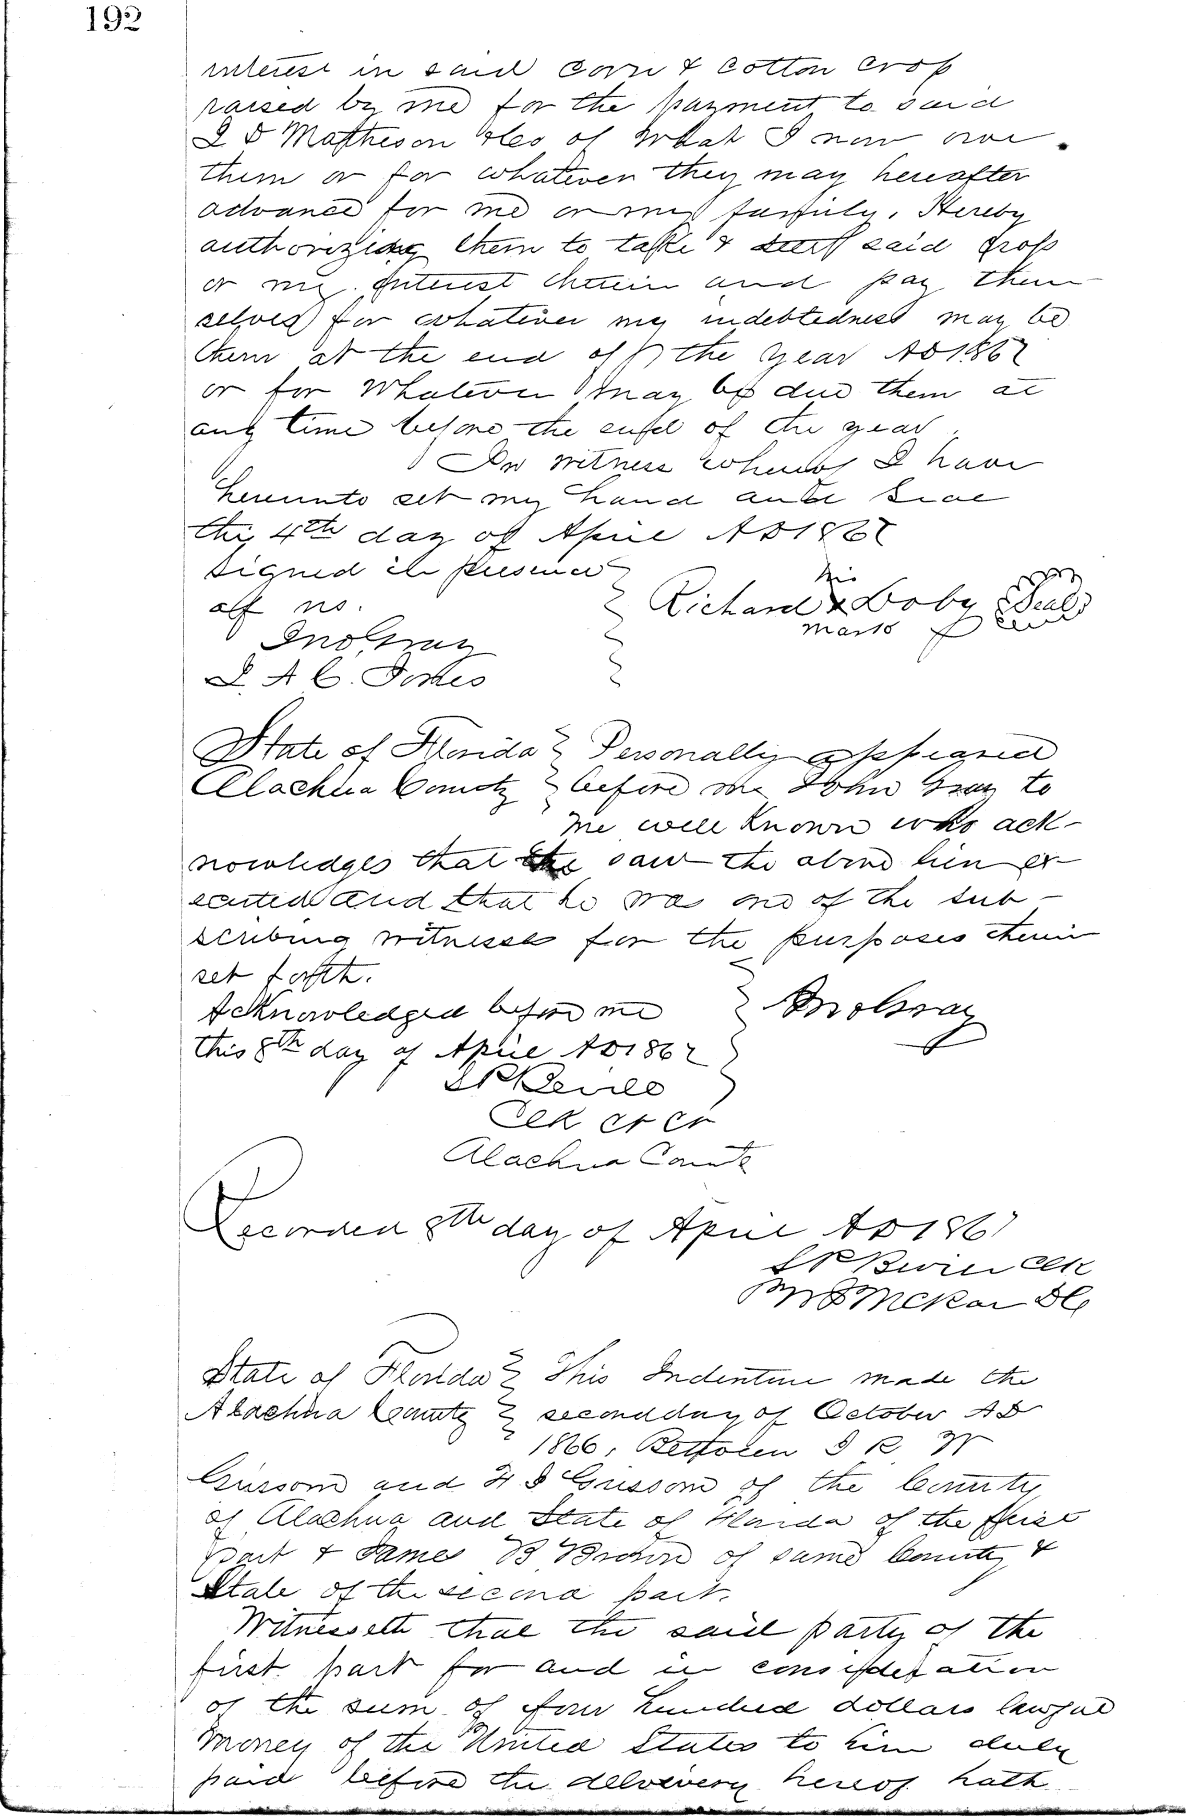 192
interest in said corn & cotton crop
raised by me for the payment to said
J D Matheson &Co of what I now owe
them or for whatever they may hereafter
advance for me or my family. Hereby
authorizing them to take & sell said crop
or my interest therein and pay them
selves for whatever my indebtedness may be
them at the end off the year AD 1867
or for whatever may be due them at
any time before the end of the year.
In witness whereof I have
hereunto set my hand and seal
the 4th day of April AD 1867
Signed in presence
off us.
his
Richard X Doby Seal
mark
Jno Gray
State of Florida } Personally appeared
Alachua County } before me John Gray to
me well known who ack-
nowledges that he saw the above lien ex-
ecuted and that he was one of the sub-
scribing witnesses for the purposes therein
set forth.
Acknowledged before me } Jno Gray
this 8th day of April AD 1867
Clk Ct Ct
Alachua County
Recorded 8th day of April AD 1867
Clk
State of Florida } This Indenture made the
Alachua County } second day of October AD
1866, Between J R W
Grissom and H J Grissom of the County
of Alachua and State of Florida of the first
part & James B Brown of same County &
State of the second part.
Witnesseth that the said party of the
first part for and in consideration
of the sum of four hundred dollars lawful
money of the United States to him duly
paid before the delivery hereof hath